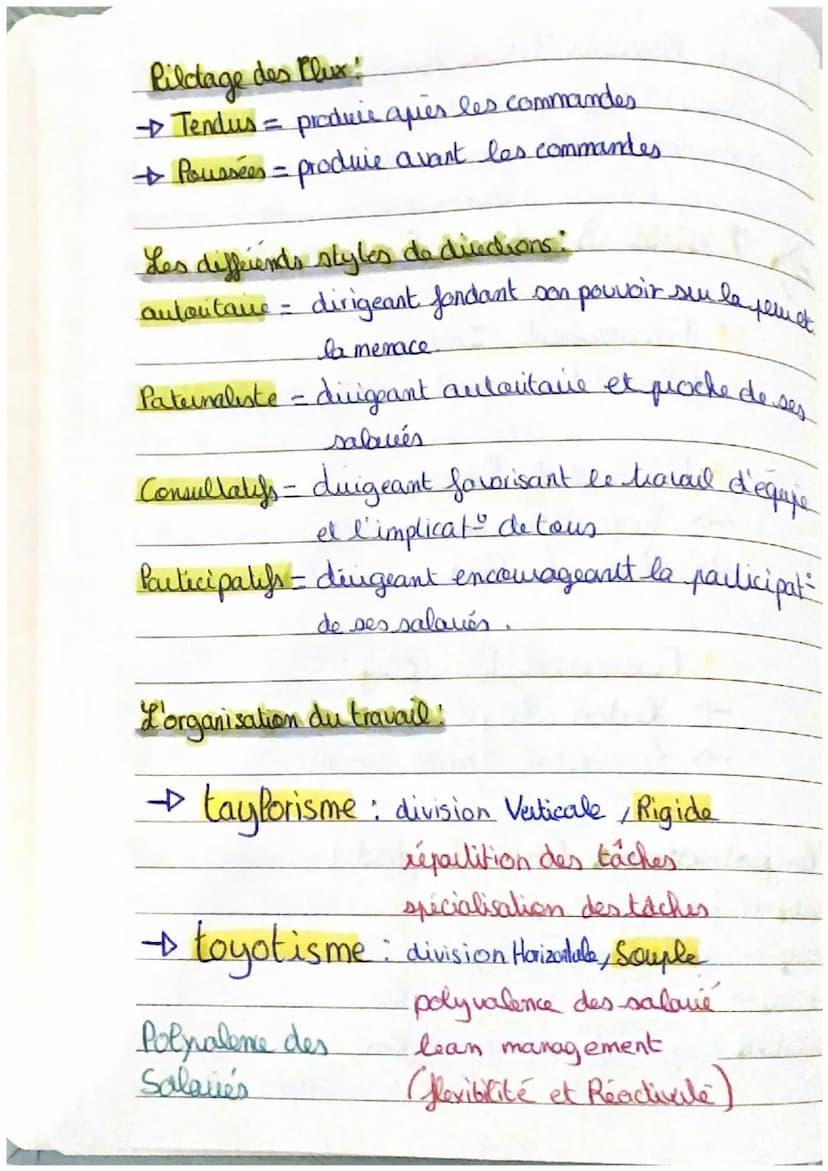 Pilotage des Flux :
→ Tendus = produire après les commandes
→ Poussées = produire avant les commandes
Les différends styles de directions :
autoritaire = dirigeant fondant son pouvoir sur la peur et
la menace.
Paternaliste = dirigeant autoritaire et proche de ses
salariés
Consultatifs = dirigeant favorisant le travail d'équipe
et l'implicat° de tous
Participatifs = dirigeant encourageant la participat°
de ses salariés.
L'organisation du travail :
→ taylorisme : division Verticale, Rigide
répartition des tâches
spécialisation des tâches
→ toyotisme : division Horizontale, Souple
polyvalence des salarié
Polyvalence des lean management
Salariés (flexibilité et Réactivité)